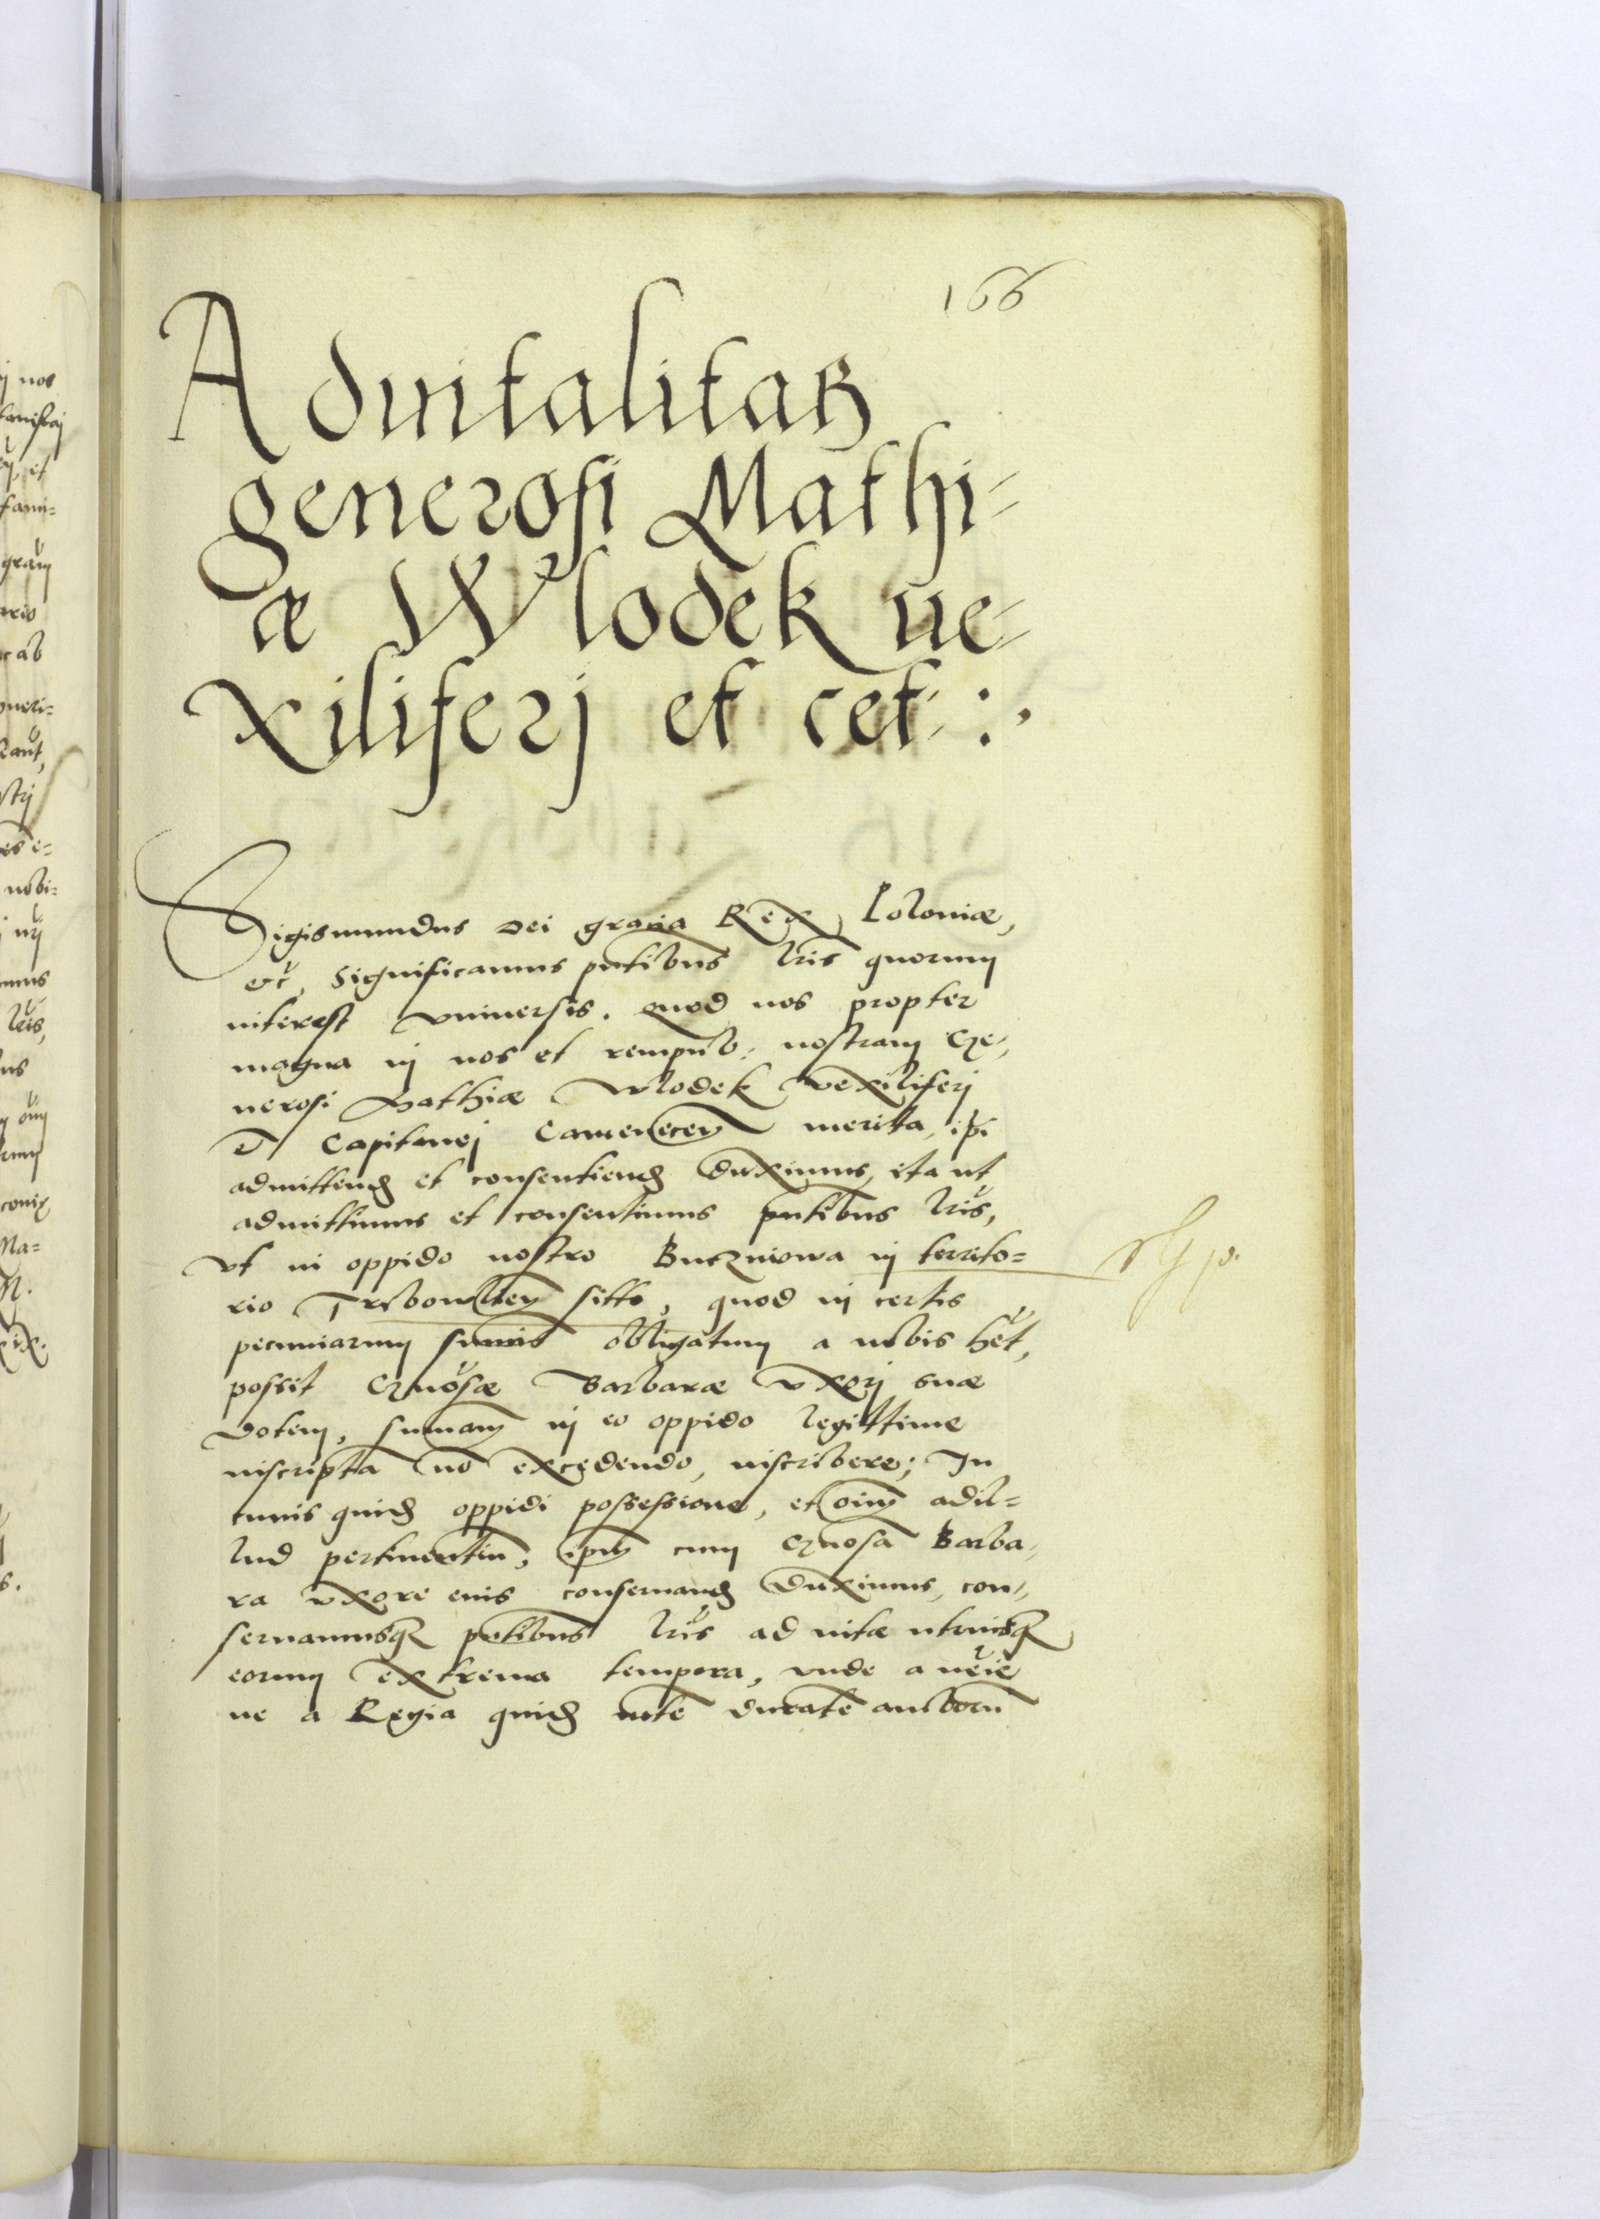 166
Aduitalitas
generosi Mathi-
æ Wlodek ue-
xiliferj et cet:
Sigismundus Dei gracia Rex Poloniæ,
etc, Significamus pntibus lris quorum
interest vniuersis. quod nos propter
magna in nos et rempub: nostram Ge-
nerosi Mathiæ Wlodek Vexiliferj
et Capitanej Camenecen merita, ipi
admittend et consentiend duximus, ita ut
admittimus et consentimus pntibus lris,
Vt in oppido nostro Buczniowa in territo=
rio Trebowlien sitto, quod in certis
pecuniarum summis obligatum a nobis het,
possit Gnosæ Barbaræ vxorj suæ
dotem, sumam in eo oppido legittime
inscripta no excedendo, inscribere; In
cuius quid oppidi possessione, et oim adil=
lud pertinentiu, ipm cum Gnosa Barba-
ra vxore eius conseruand duximus, con-
seruamusq pntibus lris ad uitæ utriusq
eorum extrema tempora, vnde a neie
ne a Regia quid mte ducate amborũ